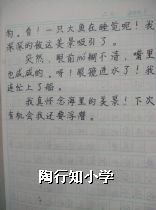 狗。看！一只大鱼在睡觉呢！我
深深的被这美景吸引了。
突然，眼前mó糊不清，嘴里
也咸咸的，呀！眼镜进水了！我
连忙上了船。
我真怀念海里的美景！下次
有机会我还要浮潜。
陶行知小学